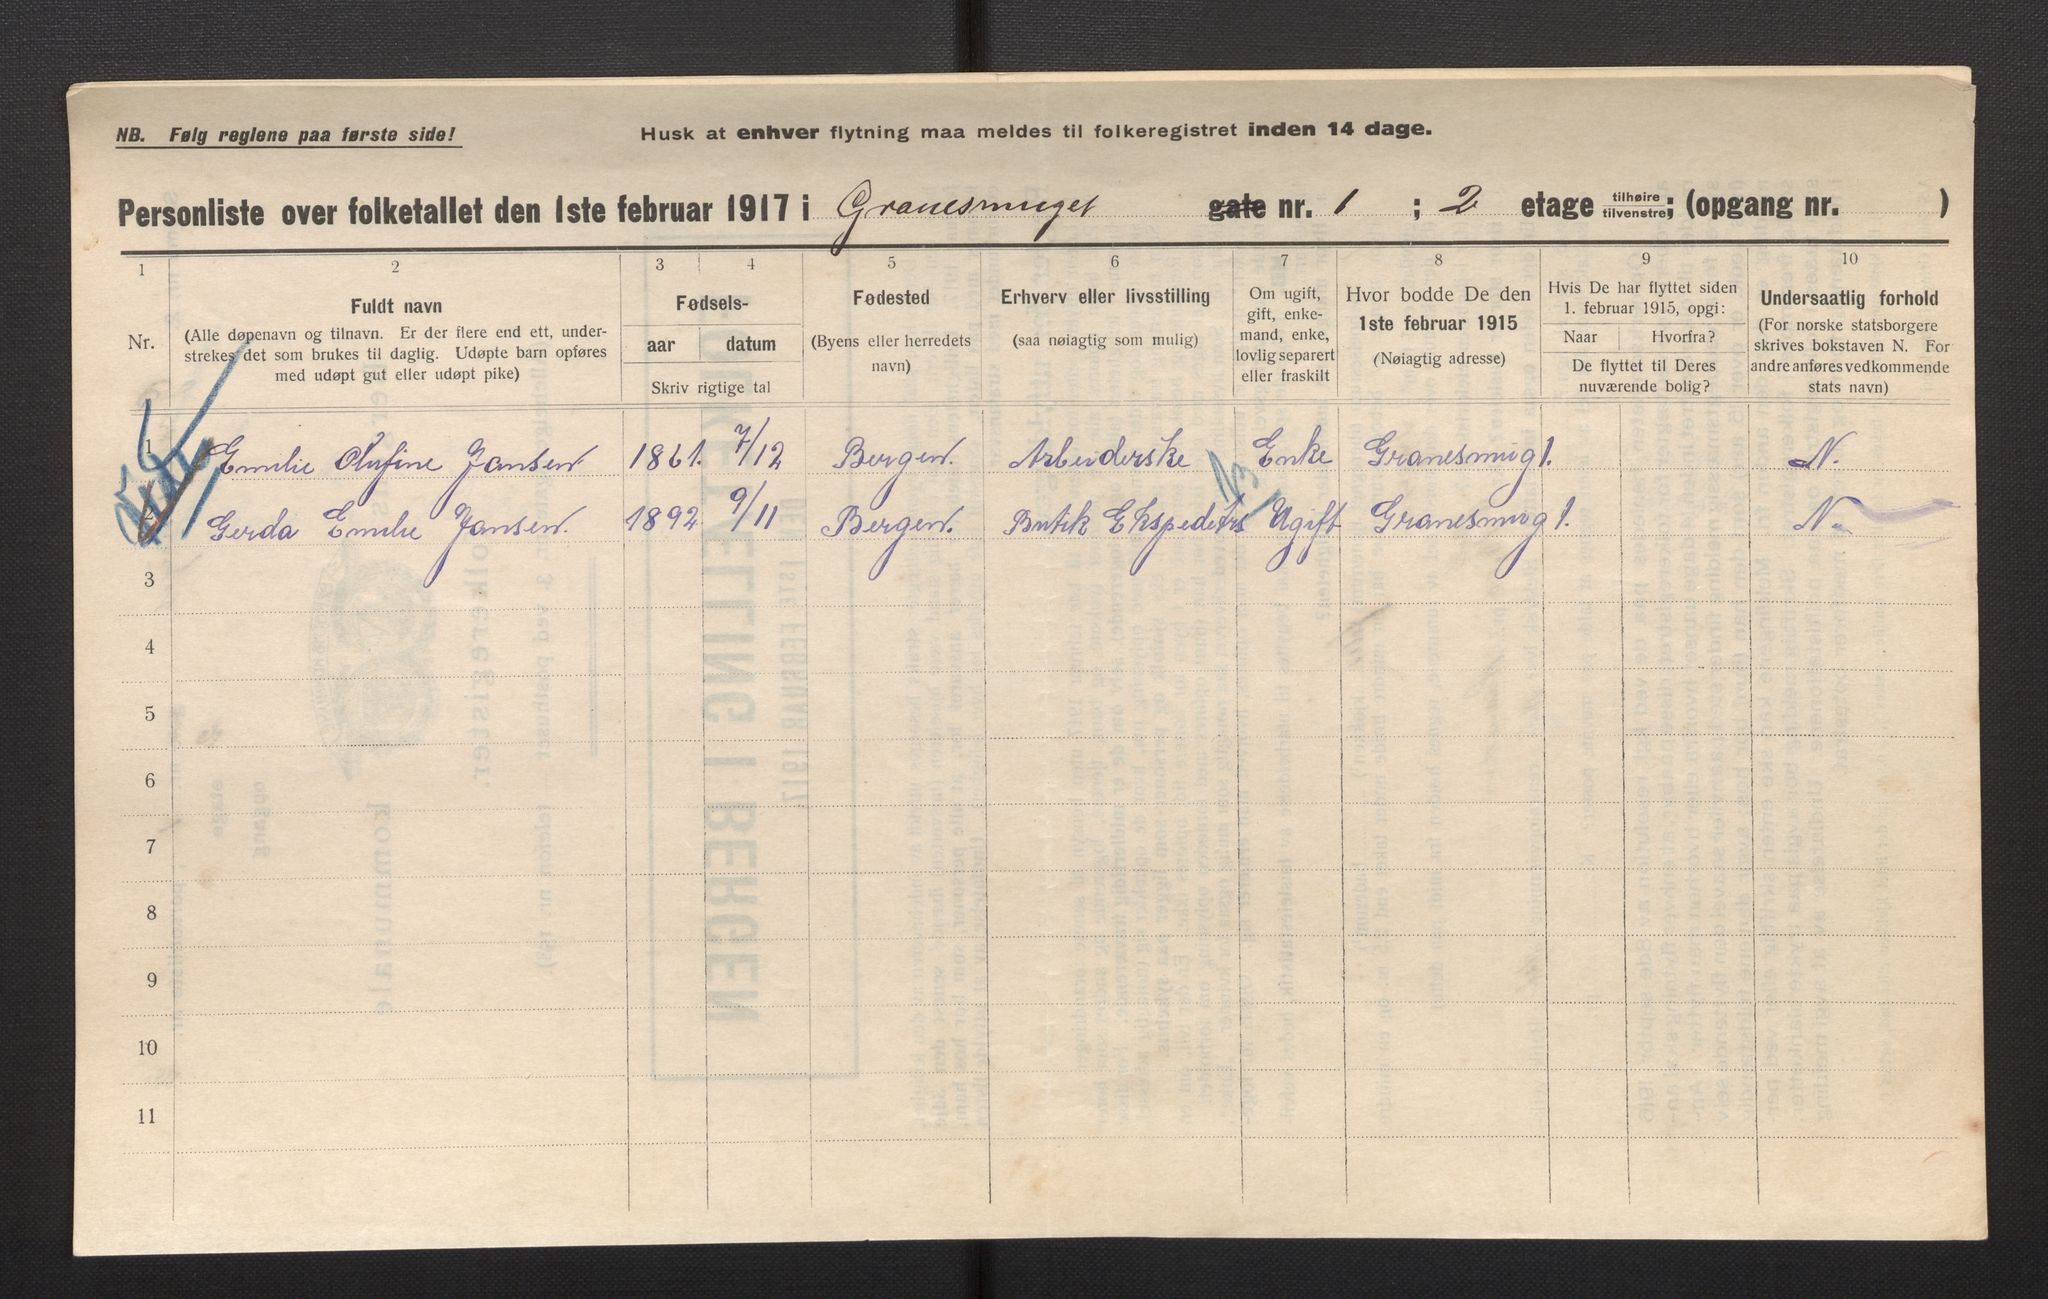 NB. Følg reglene paa første side!
Husk at enhver flytning maa meldes til folkeregistret inden 14 dage.
Personliste over folketallet den 1ste februar 1917 i Granesmuget gate nr. 1 ; 2 etage tilhøire tilvenstre; (opgang nr. )
1 2 3 4 5 6 7 8 9 10
Nr.
Fuldt navn
(Alle døpenavn og tilnavn. Er der flere end ett, under-
strekes det som brukes til daglig. Udøpte barn opføres
med udøpt gut eller udøpt pike)
Fødsels-
aar datum
Skriv rigtige tal
Fødested
(Byens eller herredets
navn)
Erhverv eller livsstilling
(saa nøiagtig som mulig)
Om ugift,
gift, enke-
mand, enke,
lovlig separert
eller fraskilt
Hvor bodde De den
1ste februar 1915
(Nøiagtig adresse)
Hvis De har flyttet siden
1. februar 1915, opgi:
Naar Hvorfra?
De flyttet til Deres
nuværende bolig?
Undersaatlig forhold
(For norske statsborgere
skrives bokstaven N. For
andre anføres vedkommende
stats navn)
1 Emilie Olufine Jansen 1861. 7/12 Bergen. Arbeiderske Enke Granesmug 1. N.
2 Gerda Emilie Jansen. 1892 9/11 Bergen. Butik Ekspeditrs Ugift Granesmug 1. N.
3
4
5
6
7
8
9
10
11